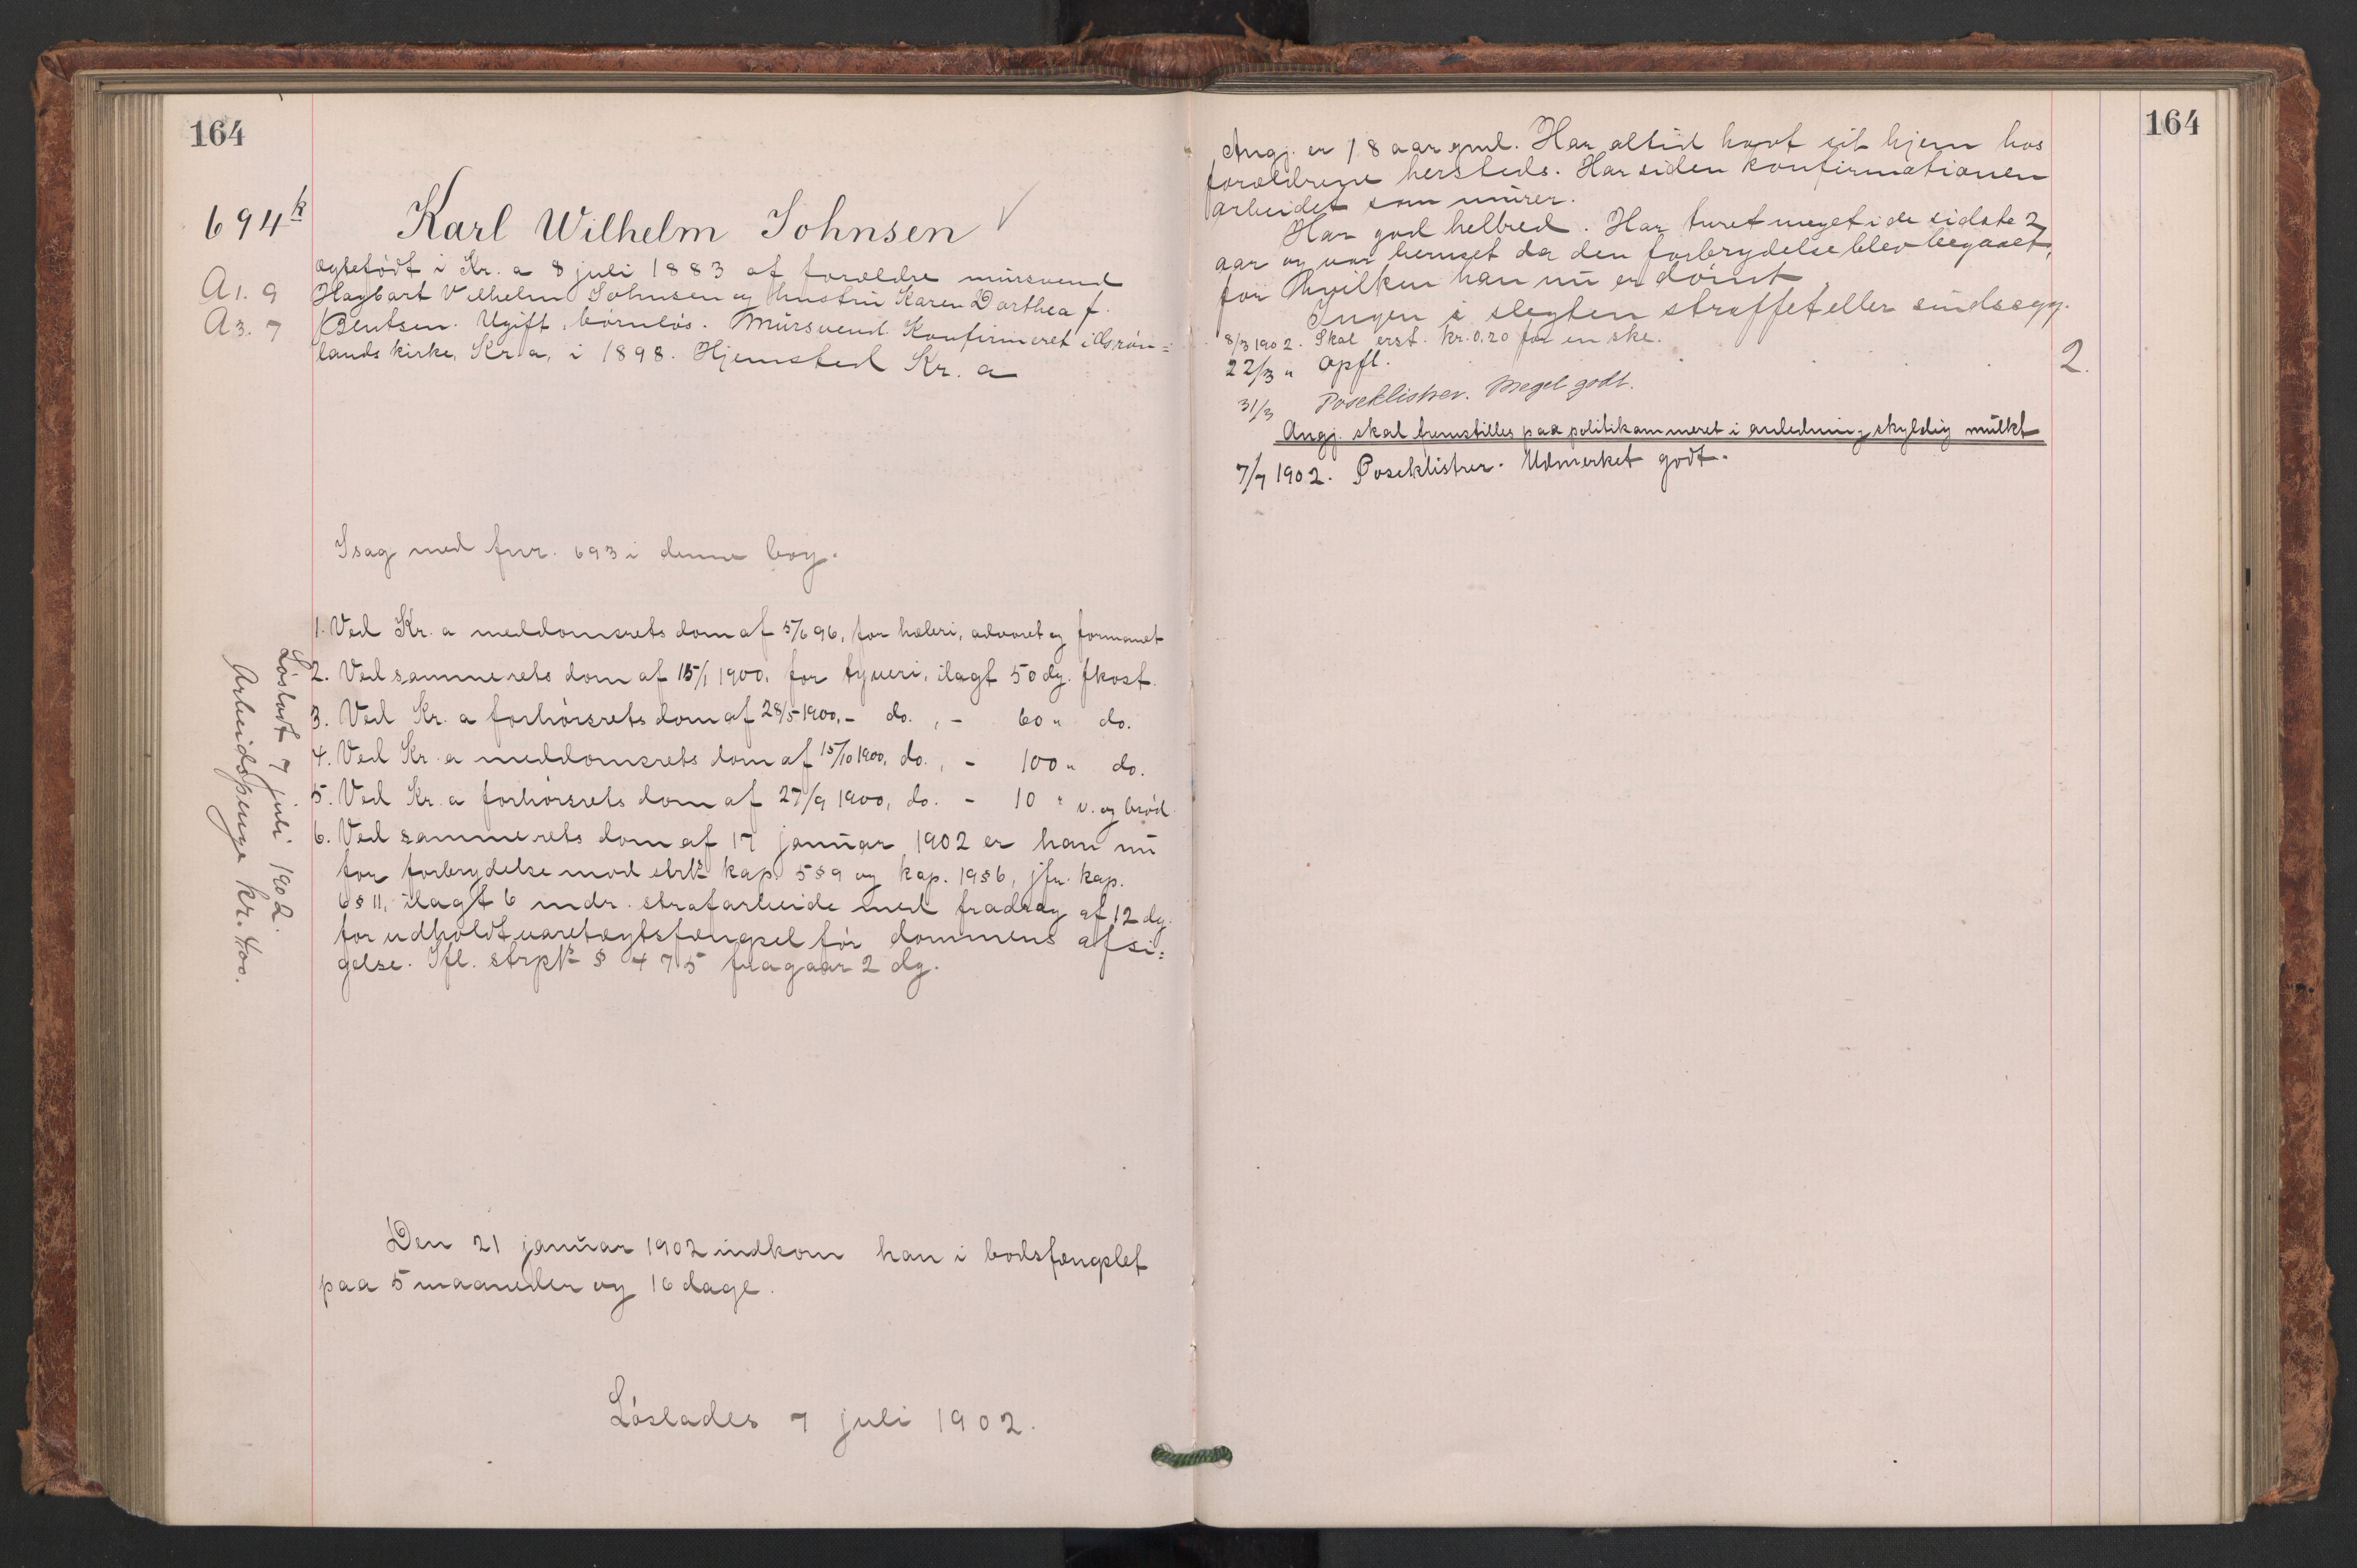 164
694k
Karl Wilhelm Johnsen √
A1. 9
A3. 7
ægtefødt i Kr.a 8 juli 1883 af forældre mursvend
Hagbart Vilhelm Johnsen og hustru Karen Dorthea f.
Bentsen. Ugift, børnløs. Mursvend. Konfirmeret i Grøn=
lands kirke, Kr.a, i 1898. Hjemsted Kr.a
I sag med fnr. 693 i denne bog.
1. Ved Kr.a meddomsrets dom af 5/6 96, for hæleri, advaret og formanet
2. Ved samme rets dom af 15/1 1900, for tyveri, ilagt 50 dg. fkost.
3. Ved Kr.a forhørsrets dom af 28/5 1900, - do. , - 60 " do.
4. Ved Kr.a meddomsrets dom af 15/10 1900, do. , - 100 " do.
5. Ved Kr.a forhørsrets dom af 27/9 1900, do. - 10 " v. og brød
6. Ved samme rets dom af 17 januar 1902 er han nu
for forbrydelse mod strk kap. 5 § 9 og kap. 19 § 6, jfr. kap.
6 § 11, ilagt 6 mdr. strafarbeide med fradrag af 12 dg.
for udholdt varetægtsfængsel før dommens afsi=
gelse. Ifl. strpl. § 475 fragaar 2 dg.
Løsladt 7 juli 1902.
Arbeidspenge kr. 4.00.
Den 21 januar 1902 indkom han i bodsfængslet
paa 5 maaneder og 16 dage.
Løslades 7 juli 1902.
164
Angj. er 18 aar gml. Har altid havt sit hjem hos
forældrene hersteds. Har siden konfirmationen
arbeidet som murer.
Har god helbred. Har turet meget i de sidste 2
aar og var beruset da den forbrydelse blev begaaet,
for hvilken han nu er dømt
Ingen i slegten straffet eller sindssyg.
8/3 1902. Skal erst. kr. 0,20 for en ske.
22/3 " Opfl.
2.
31/3 Poseklistrer. Meget godt.
Angj. skal fremstilles paa politikammeret i anledning skyldig mulkt
7/7 1902. Poseklistrer. Udmerket godt.